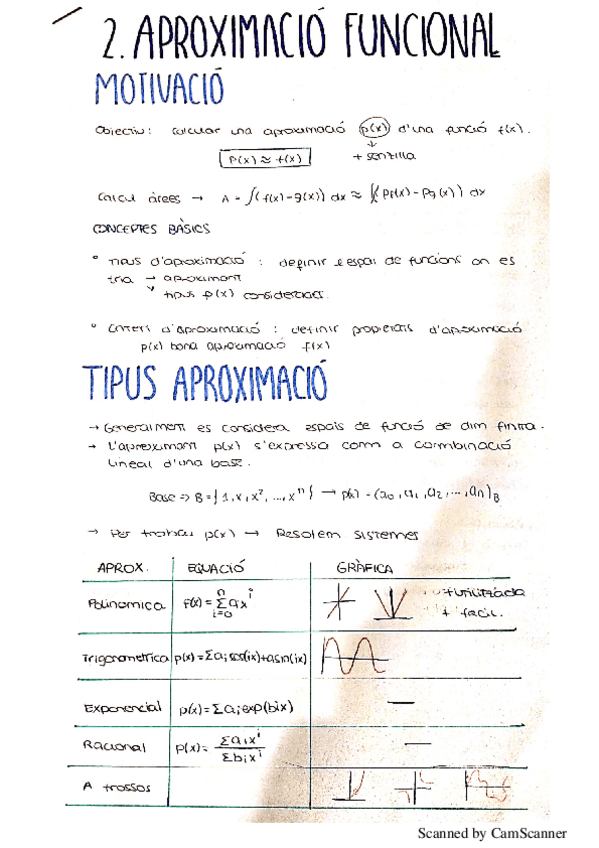 2. APROXIMACIÓ FUNCIONAL
MOTIVACIÓ
Objectiu: calcular una aproximació p(x) d'una funció f(x).
↓
P(x) ≈ f(x) + senzilla
Calcul àrees → A = ∫(f(x)-g(x)) dx ≈ ∫(Pf(x)-Pg(x)) dx
CONCEPTES BÀSICS
° Tipus d'aproximació : definir l'espai de funcions on es
tria → aproximant
↘ tipus p(x) considerades.
° Criteri d'aproximació : definir propietats d'aproximació
p(x) bona aproximació f(x)
TIPUS APROXIMACIÓ
→ Generalment es considera espais de funció de dim finita.
→ L'aproximant p(x) s'expressa com a combinació
lineal d'una base.
Base => B={1,x,x²,...,xⁿ} → p(x) = (a₀,a₁,a₂,...,aₙ)_B
→ Per trobar p(x) → Resolem sistemes
APROX. EQUACIÓ GRÀFICA
Polinomica f(x) = Σ_{i=0}^{n} a x^i + utilitzada
+ fàcil.
Trigonometrica p(x)=Σa_i cos(ix)+a sin(ix)
Exponencial p(x)= Σa_i exp(b_i x) —
Racional p(x)= Σa_i x^i / Σb_i x^i —
A trossos
Scanned by CamScanner